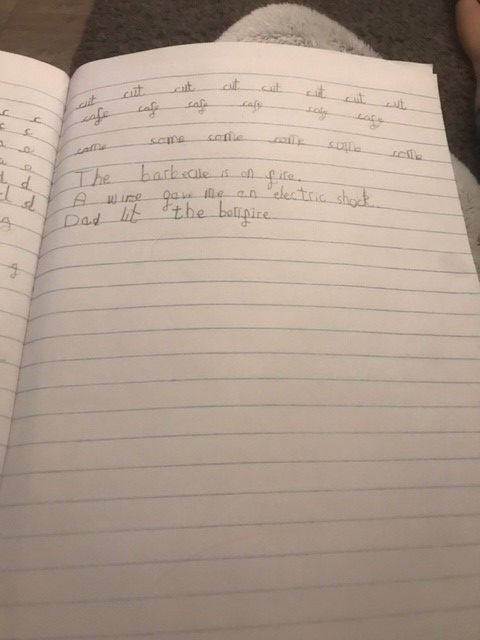 cut cut cut cut cut cut cut cut
cafe cafe cafe cafe cafe cafe
come come come come come come
The barbecue is on fire.
A wire gave me an electric shock.
Dad lit the bonfire